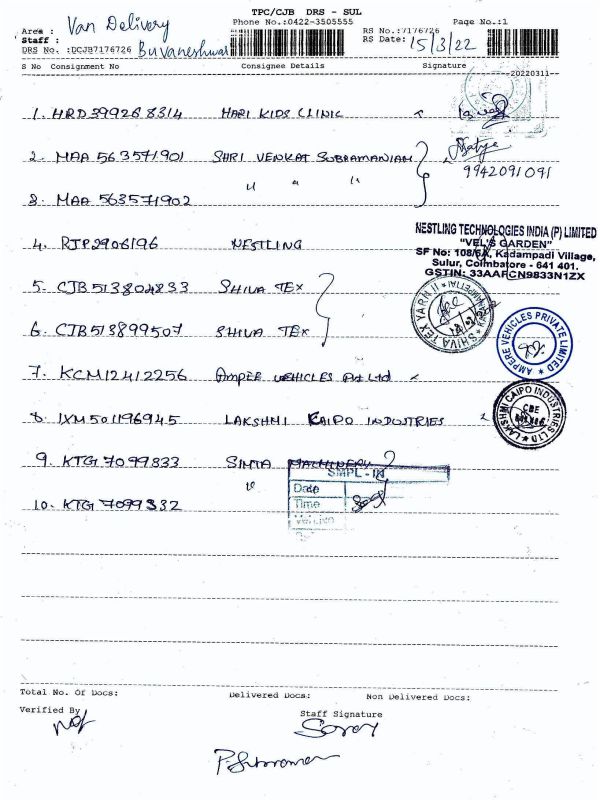 TPC/CJB DRS - SUL
Phone No.:0422-3505555
Page No.:1
Area : Van Delivery
Staff : Buvaneshwari
DRS No. :DCJB7176726
RS No.:7176726
RS Date: 15/3/22
S No Consignment No Consignee Details Signature
20220311
1. HRD399268314 HARI KIDS CLINIC
2. MAA 563571901 SHRI VENKAT SUBRAMANIAM
Satya
9942091091
3. MAA 563571902 " " "
NESTLING TECHNOLOGIES INDIA (P) LIMITED
"VEL'S GARDEN"
SF No: 108/5A, Kadampadi Village,
Sulur, Coimbatore - 641 401.
GSTIN: 33AAFCN9833N1ZX
4. RJP2906196 NESTLING
5. CJB513804833 SHIVA TEX
SHIVA TEX YARN II
6. CJB513899507 SHIVA TEX
AMPERE VEHICLES PRIVATE LIMITED
7. KCM12412256 AMPEE VEHICLES PVT Ltd
8. IXM501196945 LAKSHMI CAIPO INDUSTRIES
LAKSHMI CAIPO INDUSTRIES LTD
CBE
9. KTG7099833 SIMTA MACHINERY
SMPL - III
Date
Time
10. KTG7099832 "
Total No. Of Docs: Delivered Docs: Non Delivered Docs:
Verified By Staff Signature